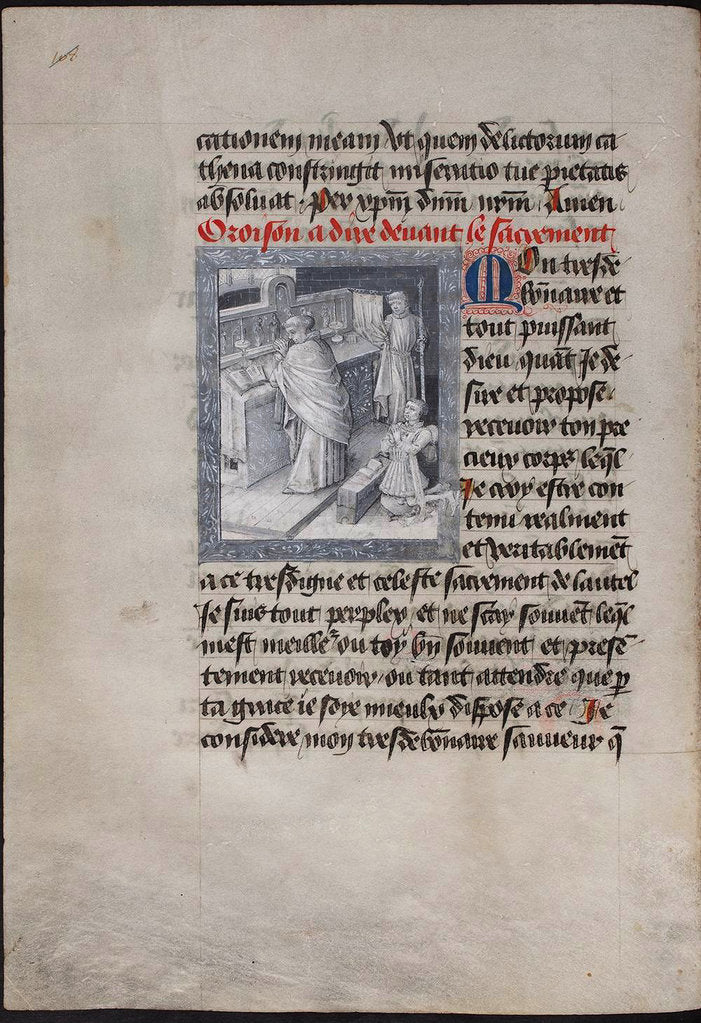 cationem meam Vt quem delictorum ca
thena constringit miseratio tue pietatis
absoluat . Per xp̄m dn̄m nr̄m Amen
Oroison a dire deuant le sacrement
MOn tresde
bōnaire et
tout puissant
dieu quāt Je de
sire et propose
receuoir ton pre
cieux corps leq̄l
Je croy estre con
tenu realment
et veritablemēt
a ce tresdigne et celeste sacrement de lautel
Je suis tout perplex et ne scay souuēt leq̄l
mest meille᷑ ou toy bn̄ souuent et presē
tement receuoir ou tant attendre que p̱
ta grace ie soye mieulx dispose a ce Je
considere mon tresdebōnaire sauueur q̄